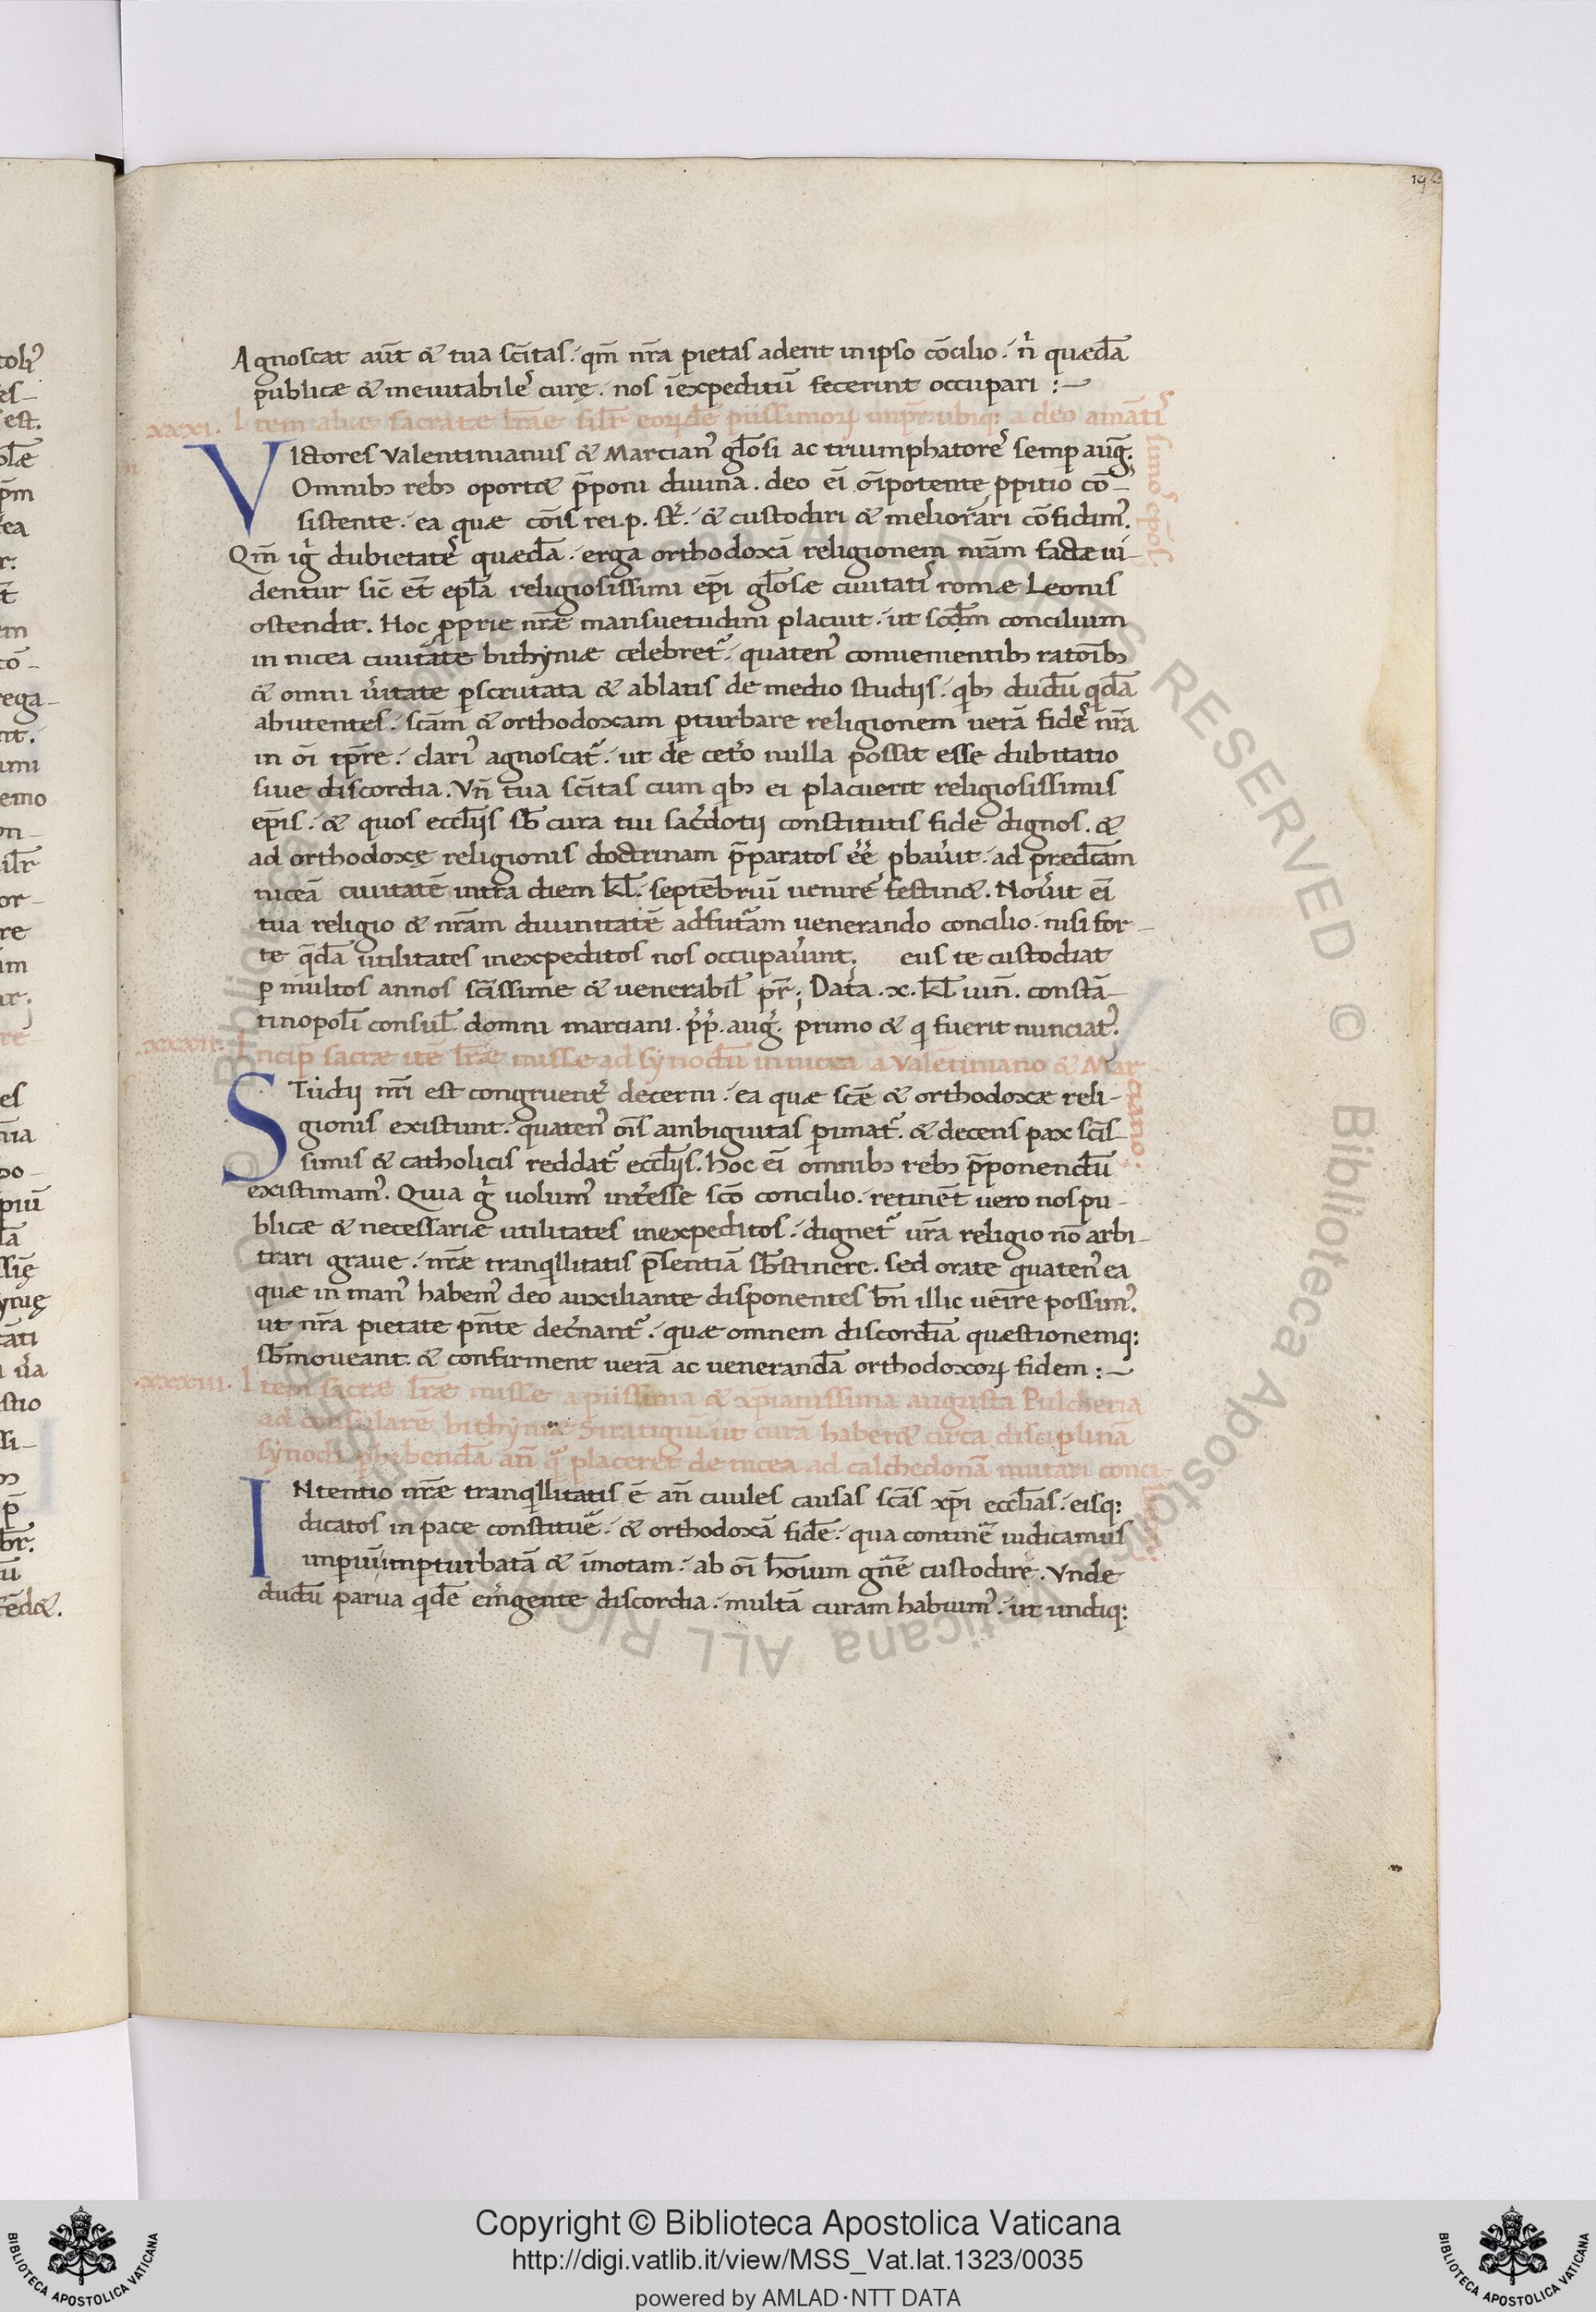 Agnoscat aūt & tua sc̄itas. qm̄ nr̄a pietas aderit in ipso cōcilio. n̄ quædā
publicæ & ineuitabiles curę. nos īexpeditū fecerint occupari :~
.xxxi. Item aliæ sacratæ lr̄ae silr̄ eorꝝdē piissimoꝝ impr̄. ubiq; a deo amāti
simos ep̄os.
VIctores Valentinianus & Marcian᾽ gl̄osi ac triumphatores semp auḡ.
Omnibꝫ rebꝫ oport& p̄poni diuina. deo ei᷒ oīpotente ꝓpitio cō-
sistente. ea quæ cōis rei. p. sr̄. & custodiri & meliorari cōfidim᾽.
Qm̄ ig᷒ dubietates quædā. erga orthodoxā religionem nr̄am factæ ui-
dentur sic̄ et̄ epl̄a religiosissimi ep̄i gl̄osæ ciuitatis romæ Leonis
ostendit. Hoc ꝓprie nr̄e mansuetudini placuit. ut sc̄dm concilium
in nicea ciuitate bithyniæ celebret᷑. quaten᾽ conuenientibꝫ ratōibꝫ
& omni ūitate ꝑscrutata & ablatis de medio studiis. qbꝫ dudū qdā
abutentes. sc̄am & orthodoxam ꝑturbare religionem uerā fides nr̄a
in oī tp̄re. clari᾽ agnoscat᷑. ut de cet᷒o nulla possit esse dubitatio
siue discordia. Vn̄ tua sc̄itas cum qbꝫ ei placuerit religiosissimis
ep̄is. & quos eccl̄iis sb̄ cura tui sac᷒dotii constitutis fide dignos. &
ad orthodoxę religionis doctrinam p̄paratos ēē ꝓbau᷒it. ad prædc̄am
niceā ciuitatē intra diem kl̄. septēbriū uenire festin&. Nou᷒it ei᷒
tua religio & nr̄am diuinitatē adfut᷑am uenerando concilio. nisi for-
te qdā utilitates inexpeditos nos occupau᷒int; eus te custodiat
ꝑ multos annos sc̄issime & uenerabil̄ pr̄; Data .x. kl̄ iun̄. constā-
tinopoli consul̄ domni marciani. pp̄. auḡ. primo & qi fuerit nunciat᾽.
.xxxii. Incip̄ sacræ itē lr̄æ misse ad synodū in nicea a Valentiniano & Mar-
ciano:
STudii nr̄i est congruent᷒ decerni. ea quæ sc̄e & orthodoxæ reli-
gionis existunt. quaten᾽ oīs ambiguitas ꝑimat᷑. & decens pax sc̄is-
simis & catholicis reddat᷑ eccl̄iis. Hoc ei᷒ omnibꝫ rebꝫ p̄ponendū
existimam᾽. Quia g᷒ uolum᾽ int᷒esse sc̄o concilio. retinēt uero nos pu-
blicæ & necessariæ utilitates inexpeditos. dignet᷑ ur̄a religio nō arbi-
trari graue. nr̄æ tranqillitatis p̄sentiā sb̄stinere. sed orate quaten᾽ ea
quæ in man᾽ habem᾽ deo auxiliante disponentes bn̄ illic ueīre possim᾽.
ut nr̄a pietate pn̄te dec᷒nant᷑. quæ omnem discordiā quæstionemq;
sb̄moueant. & confirment uerā ac uenerandā orthodoxoꝝ fidem :~
.xxxiii. Item sacræ lr̄æ misse a piissima & xp̄ianissima augusta Pulcheria
ad consularē bithyniæ Stratigiū ut curā haber& circa disciplinā
synodi ꝓhibendā an̄ q̄ placeret de nicea ad calchedonā mutari conci-
INtentio nr̄æ tranqillitatis ē an̄ ciuiles causas sc̄as xp̄i eccl̄ias. eisq;
dicatos in pace constituē. & orthodoxā fidē. qua continē᷑ iudicamus
imperiū imꝑturbatā & īmotam. ab oī hōium gn̄e custodire. Vnde
dudū parua qidē em᷒gente discordia. multā curam habuim᾽. ut undiq;
Copyright © Biblioteca Apostolica Vaticana
http://digi.vatlib.it/view/MSS_Vat.lat.1323/0035
powered by AMLAD·NTT DATA
BIBLIOTECA APOSTOLICA VATICANA
BIBLIOTECA APOSTOLICA VATICANA